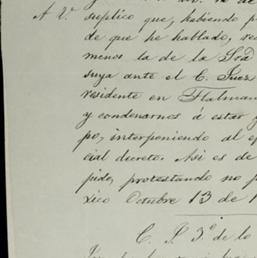 A V.
suplico que, habiendo p
de que he hablado, re
menos la de la Sra
suya ante el C. Juez
residente en Tlalman
y condenarnos á estar
po, interponiendo al ef
cial decreto. Asi es de
pido, protestando no p
xico Octubre 13 de 1
C. J. 3.º de lo